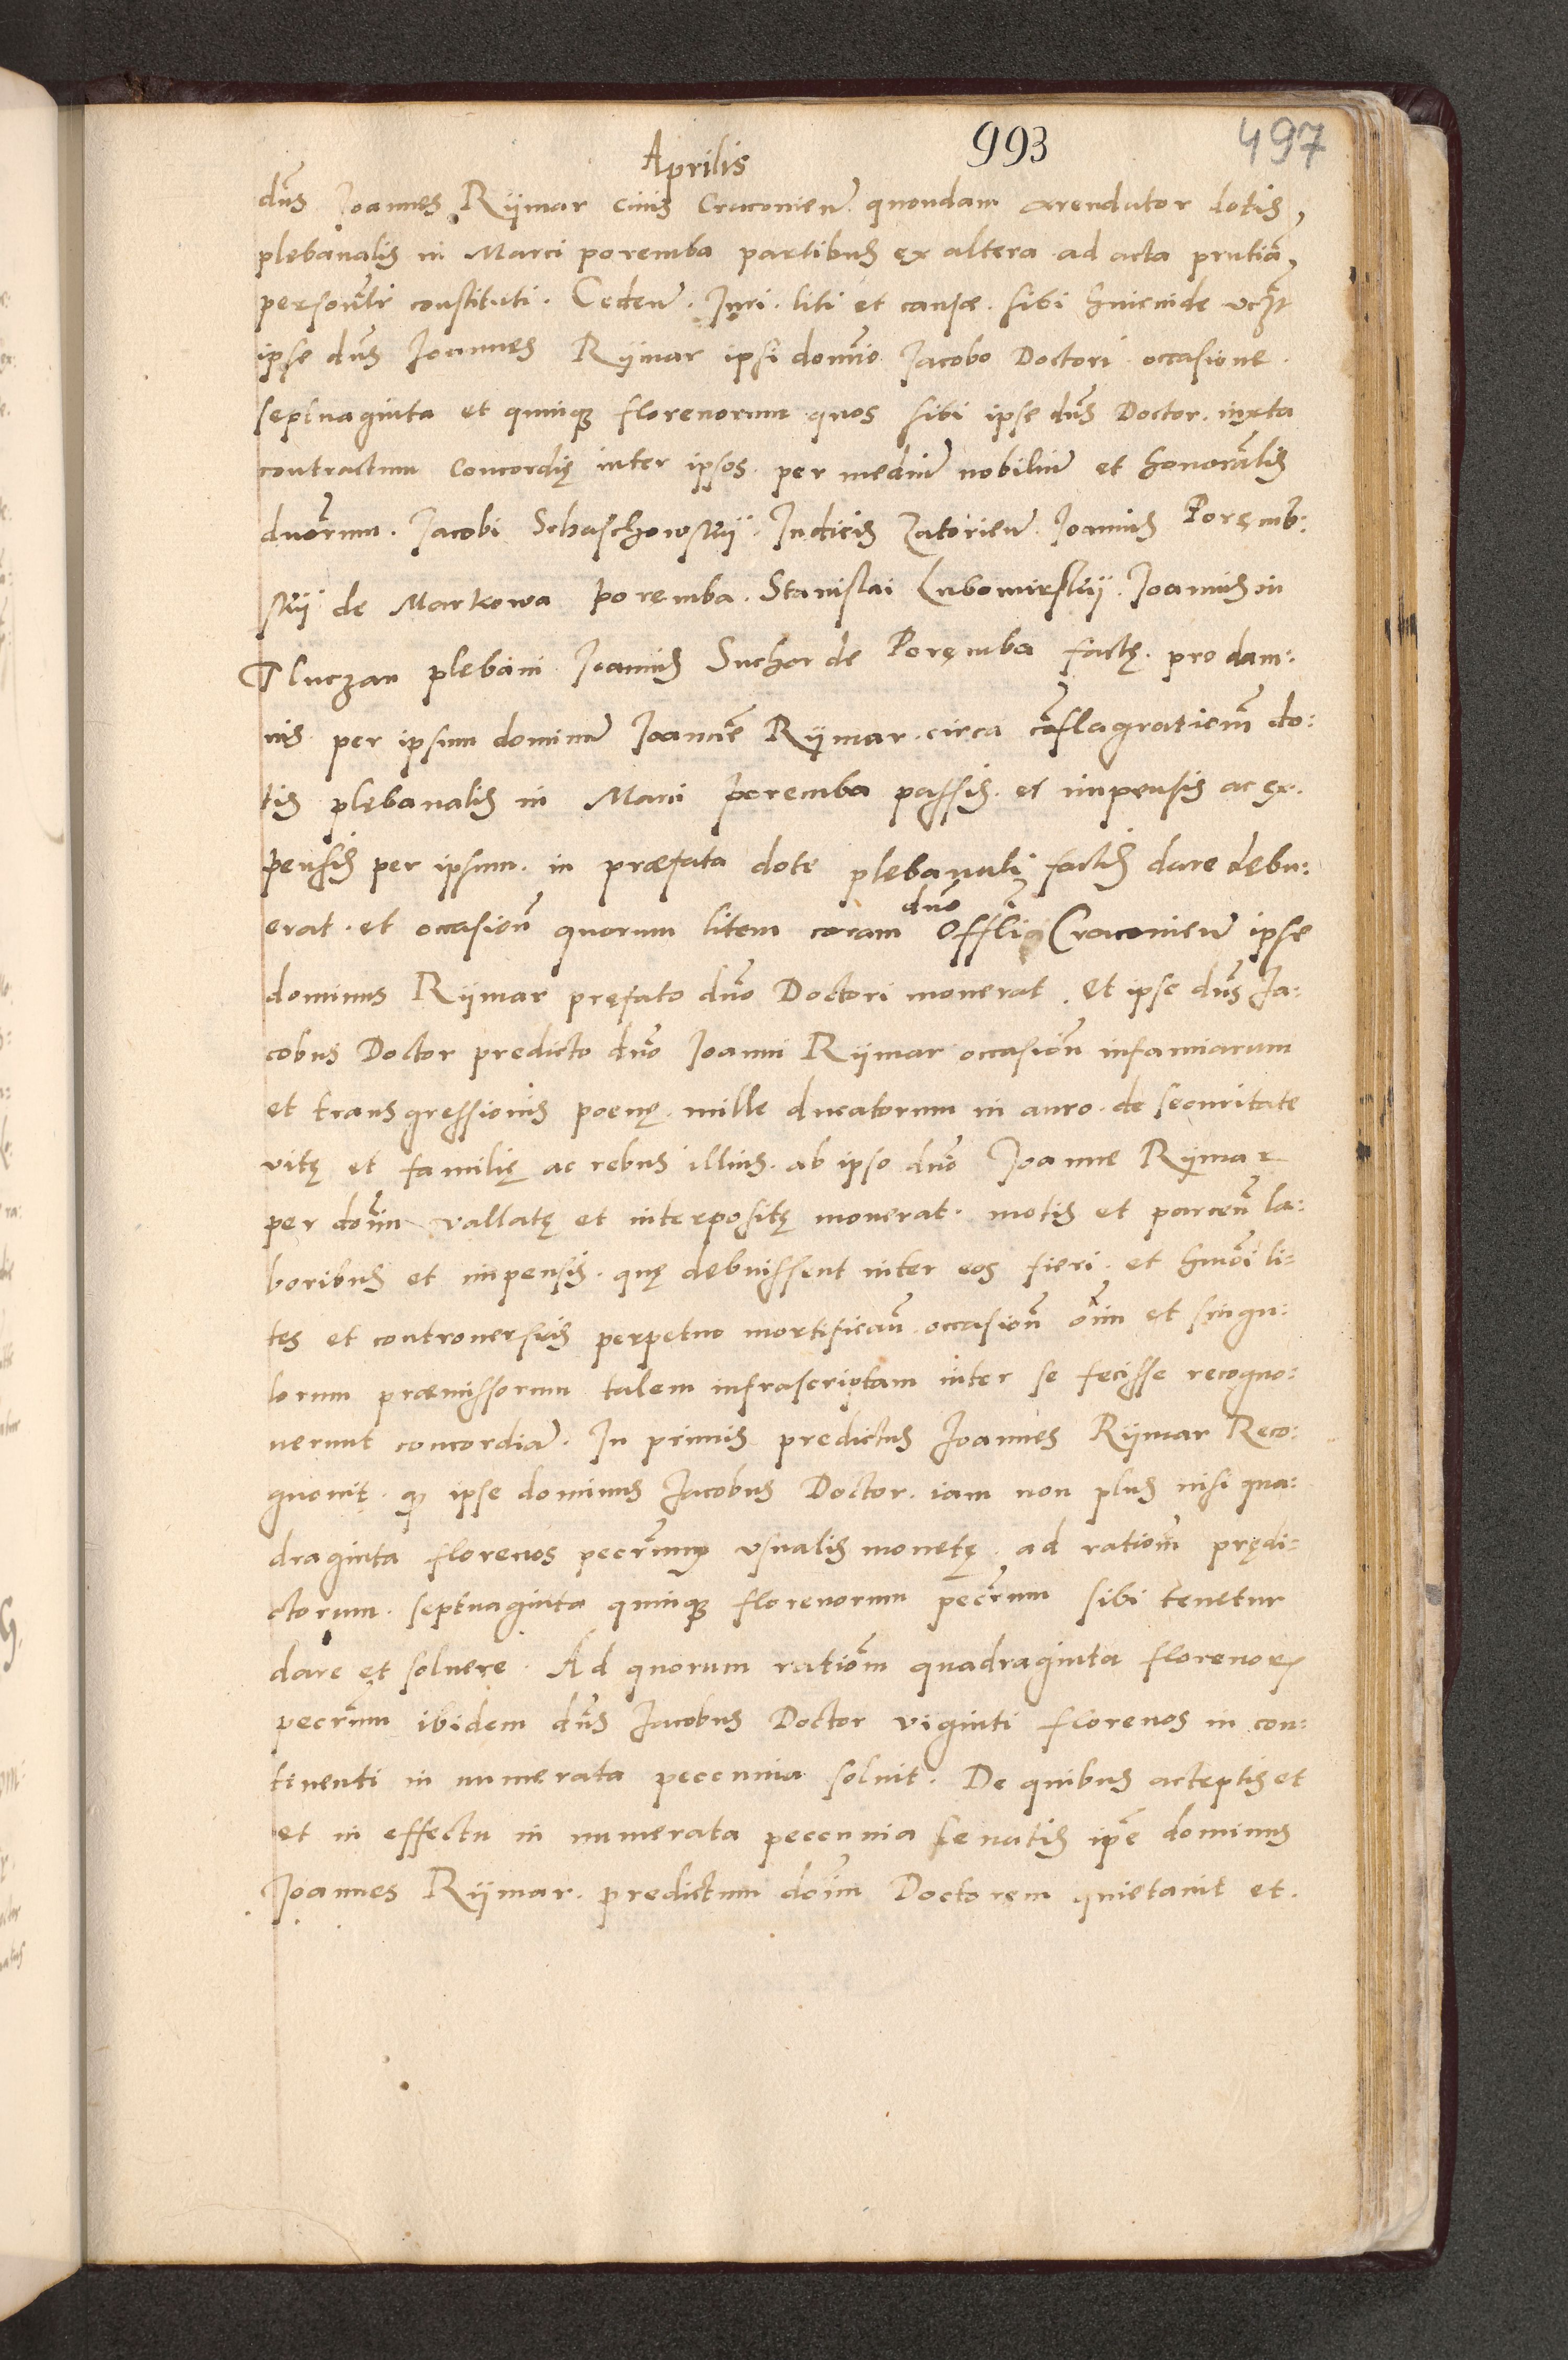 Aprilis 993 497
dns̃ Joannes Rijmar ciuis Cracovien̄ quondam arendator dotis
plebanalis in Marci poremba partibus ex altera ad acta pñtia
personl̃r constituti. Ceden̄. Juri. liti et causæ. sibi hincinde vczt
ipse dns̃ Joannes Rijmar ipsi domīo Jacobo Doctori occasione
septuaginta et quinqꝫ florenorum quos sibi ipse dns̃ Doctor. iuxta
contractum Concordię inter ipsos per mediū nobiliū et honorabĩlis
dnorum. Jacobi Schaschowskij. Judicis Zatorien̄ Joannis Poręmb:
skij de Markowa poremba. Stanislai Lubomirskij. Joannis in
Tluczan plebani Joannis Suchor de Poręmba factę. pro dam:
nis. per ipsum dominū Joannē Rijmar. circa cōflagrationem̃ do:
tis plębanalis in Marci poremba passis. et impensis ac ex.
pensis per ipsum. in præfata dote plebanali factis dare dębu:
erat. et occasion̄ quorum litem coram dn̄o Offĩli Cracovien̄ ipse
dominus Rijmar pręfato dn̄o Doctori mouerat. Et ipse dns̃ Ja:
cobus Doctor predicto dn̄o Joanni Rijmar occasion̄ infamiarum
et transgressionis poenę. mille ducatorum in auro. de securitate
vitę et familię ac rebus illius. ab ipso dn̄o Joanne Rijmar
per don̄im vallatę et interpositę mouerat. motis et parcen̄ la:
boribus et impensis. quę debuissent inter eos fieri. et hm̄oi li:
tes et controuersias perpetuo mortifican̄. occasion̄ om̄im et singu:
lorum præmissorum talem infrascriptam inter se fecisse recogno:
uerunt concordiā. In primis predictus Joannes Rijmar Reco:
gnouit. qꝫ ipse dominus Jacobus Doctor. iam non plus nisi qua:
draginta florenos pecrũmqꝫ vsualis monetę. ad ration̄m prędi:
ctorum. septuaginta quinqꝫ florenorum pecrũm sibi tenetur
dare et soluere. Ad quorum ration̄m quadraginta florenorꝫ
pecrũm ibidem dns̃ Jacobus Doctor viginti florenos in con:
tinenti in numerata peccunia soluit. De quibus acceptis et
et in effectu in numerata peccunia leuatis ip̄e dominus
Joannes Rijmar. predictum don̄im Doctorem quietauit et.